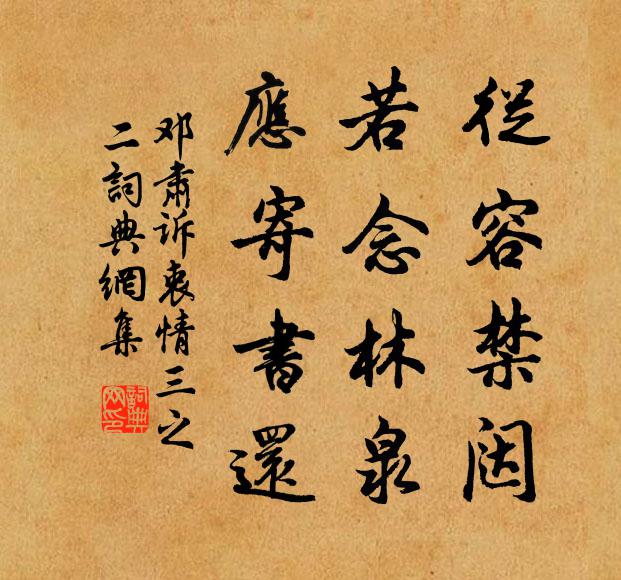 從容禁闼
若念林泉
應寄書還
邓肅诉衷情三之
二詞典網集
詞典
网印